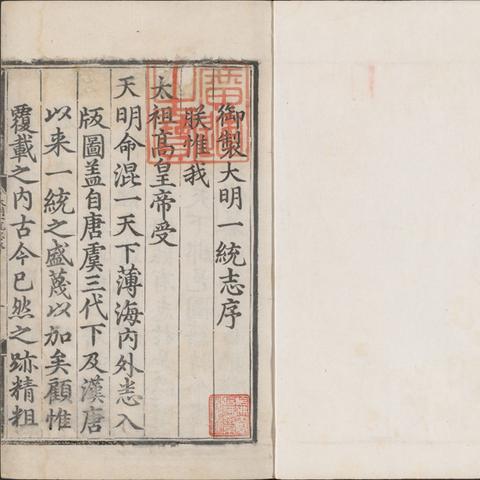 御製大明一統志序
朕惟我
太祖高皇帝受
天明命混一天下薄海內外悉入
版圖蓋自唐虞三代下及漢唐
以來一統之盛蔑以加矣顧惟
覆載之內古今已然之跡精粗